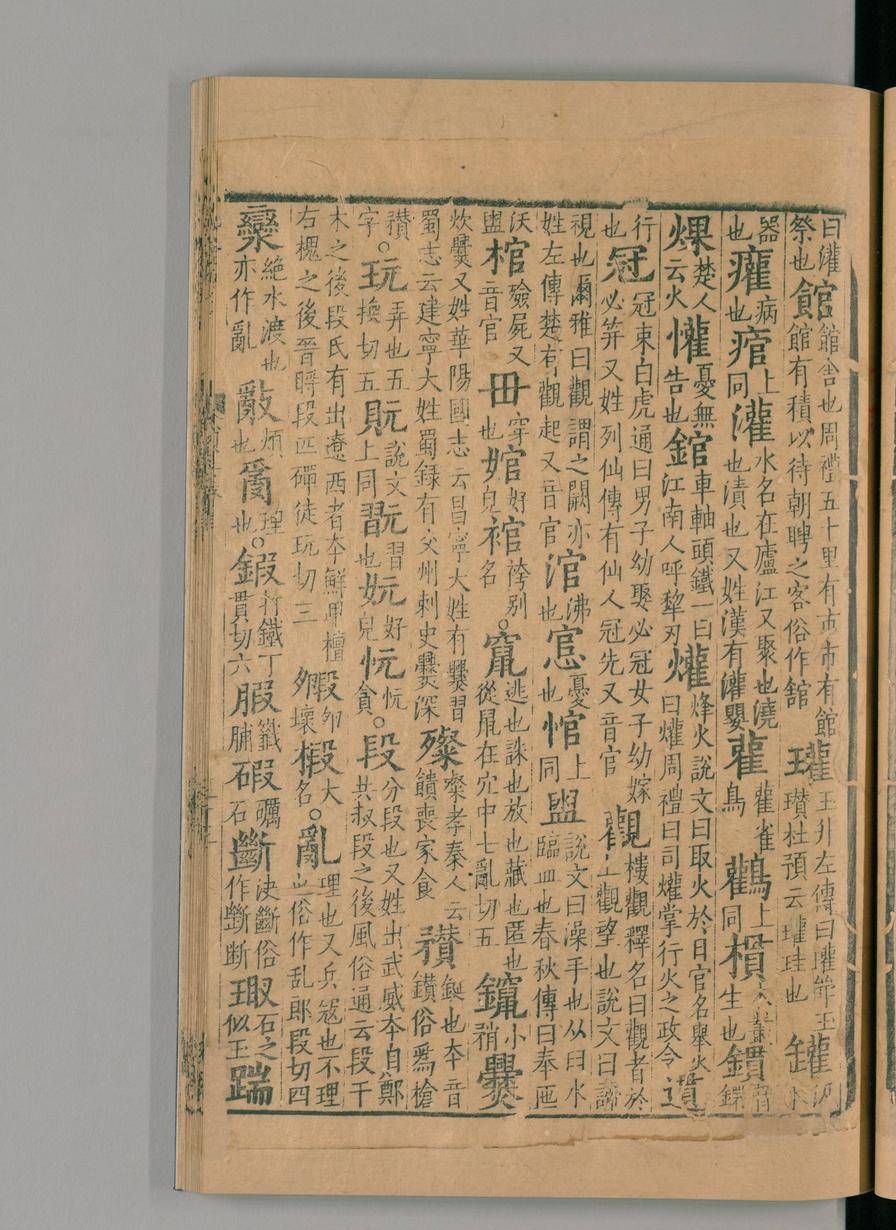 曰灌祭也館館舍也周禮五十里有市市有館館有積以待朝聘之客俗作舘瓘玉升左傳曰瓘斝玉瓚杜預云瓘珪也罐汲水
器也癯病也痯上同灌水名在廬江又聚也澆也漬也又姓漢有灌嬰雚雚雀鳥鸛上同樌木叢生也鏆穿鐶
爟楚人云火懽憂無告也錧車軸頭鐵一曰江南人呼犂刃爟烽火說文曰取火於日官名舉火曰爟周禮曰司爟掌行火之政令遦
行也冠冠束白虎通曰男子幼娶必冠女子幼嫁必笄又姓列仙傳有仙人冠先又音官觀樓觀釋名曰觀者於上觀望也說文曰諦
視也爾雅曰觀謂之闕亦姓左傳楚有觀起又音官涫沸也悹憂也悺上同盥說文曰澡手也从臼水臨皿也春秋傳曰奉匜
沃盥棺殮屍又音官毌穿也婠好皃䘾袴別名○竄逃也誅也放也藏也匿也從鼠在穴中七亂切五鑹小矟爨
炊爨又姓華陽國志云昌寧大姓有爨習蜀志云建寧大姓蜀錄有交州刺史爨深䉔䉔孝秦人云饋喪家食䄟鋋也本音鑽俗爲槍
䄟字○玩弄也五換切五貦說文上同翫習也妧好皃忨忨貪○段分段也又姓出武威本自鄭共叔段之後風俗通云段干
木之後段氏有出遼西者本鮮卑檀右槐之後晉將段匹磾徒玩切三毈卵壞椴木名○亂理也又兵寇也不理也俗作乱郎段切四
灓絕水渡也亦作亂敿煩也𤔔理也○鍛打鐵丁貫切六腶籤脯碫礪石斷決斷俗作㫁断瑖石之似玉踹